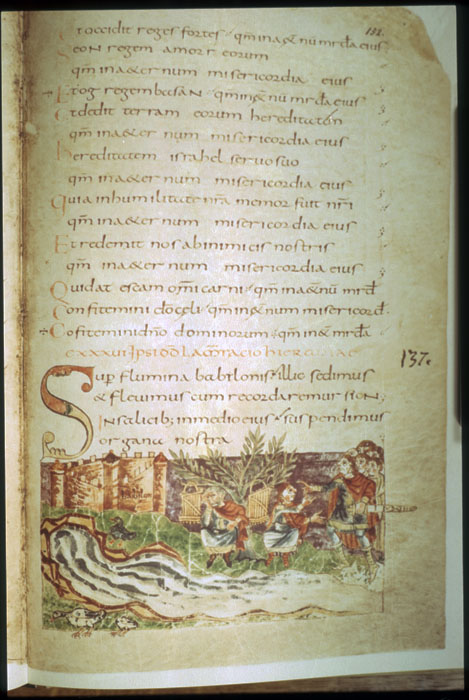 132.
Et occidit reges fortes qm in aet nu mrda eius
Seon regem amorreorum
qm in aeternum misericordia eius
Et og regem basan qm in aet nu mrda eius
Et dedit terram eorum hereditatem
qm in aeternum misericordia eius
hereditatem israhel servo suo
qm in aeternum misericordia eius
Quia in humilitate nra memor fuit nri
qm in aeternum misericordia eius
Et redemit nos ab inimicis nostris
qm in aeternum misericordia eius
Qui dat escam omi carni qm in aet nu mrd
Confitemini do celi qm in aet num misericord
Cofitemini dno dominorum qm in aet mrda
CXXXVI
137.
Sup flumina babilonis illic sedimus
& flevimus cum recordaremur sion;
In salicib; in medio eius suspendimus
organa nostra